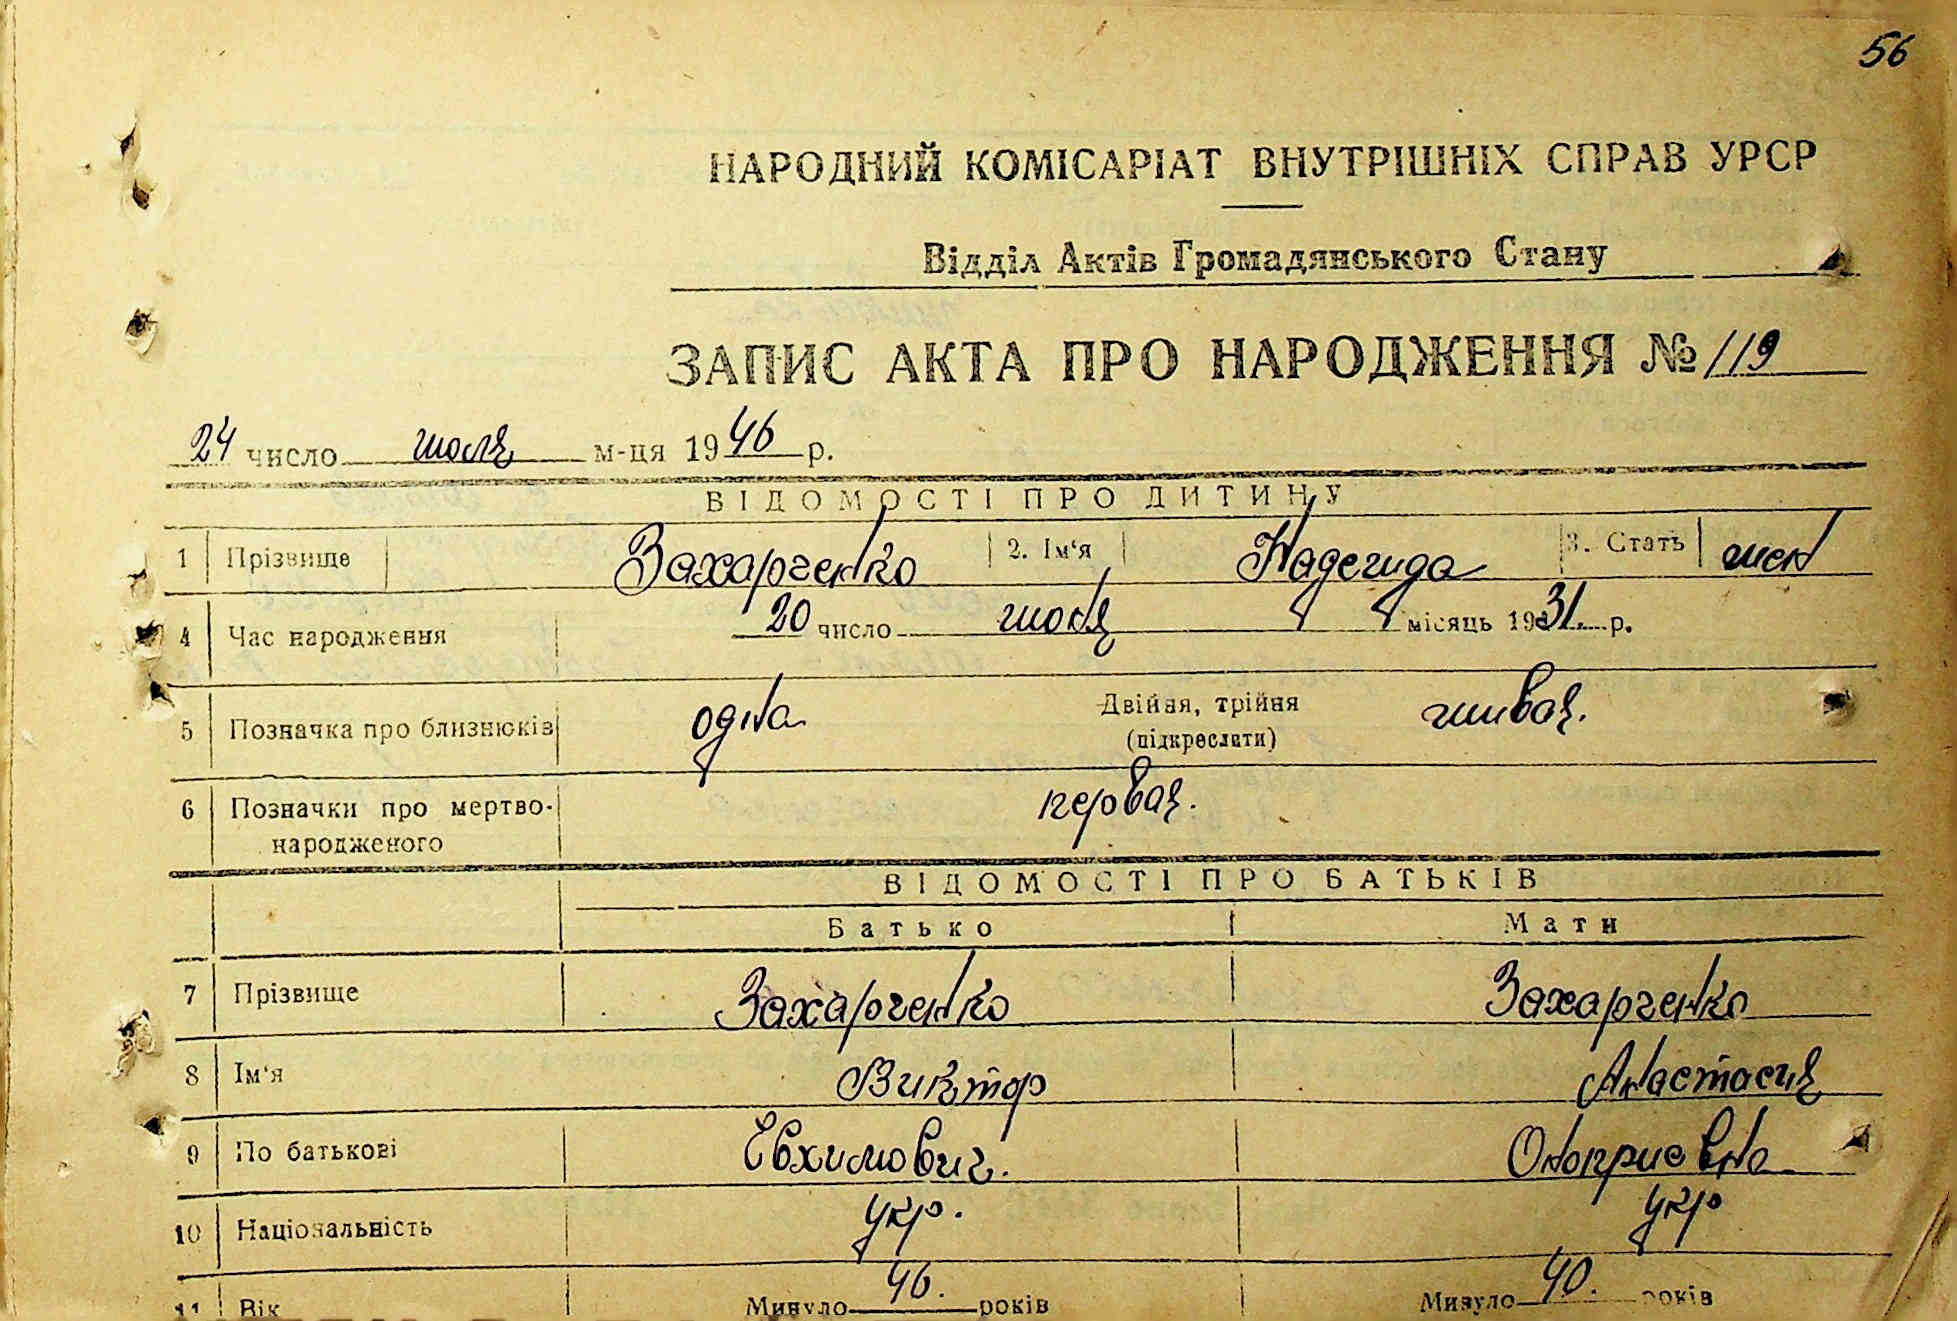 56
НАРОДНИЙ КОМІСАРІАТ ВНУТРІШНІХ СПРАВ УРСР
Відділ Актів Громадянського Стану
ЗАПИС АКТА ПРО НАРОДЖЕННЯ № 119
24 число июля м-ця 1946 р.
ВІДОМОСТІ ПРО ДИТИНУ
1 Прізвище Захарченко 2. Ім‘я Надежда 3. Стать жен
4 Час народження 20 число июля місяць 1931. р.
5 Позначка про близнюків одна Двійня, трійня (підкреслити) живая.
6 Позначки про мертво-
народженого первая.
ВІДОМОСТІ ПРО БАТЬКІВ
Батько Мати
7 Прізвище Захарченко Захарченко
8 Ім‘я Виктор Анастасия
9 По батькові Евхимович. Оноприевна
10 Національність укр. укр
11 Вік Минуло 46. років Минуло 40. років